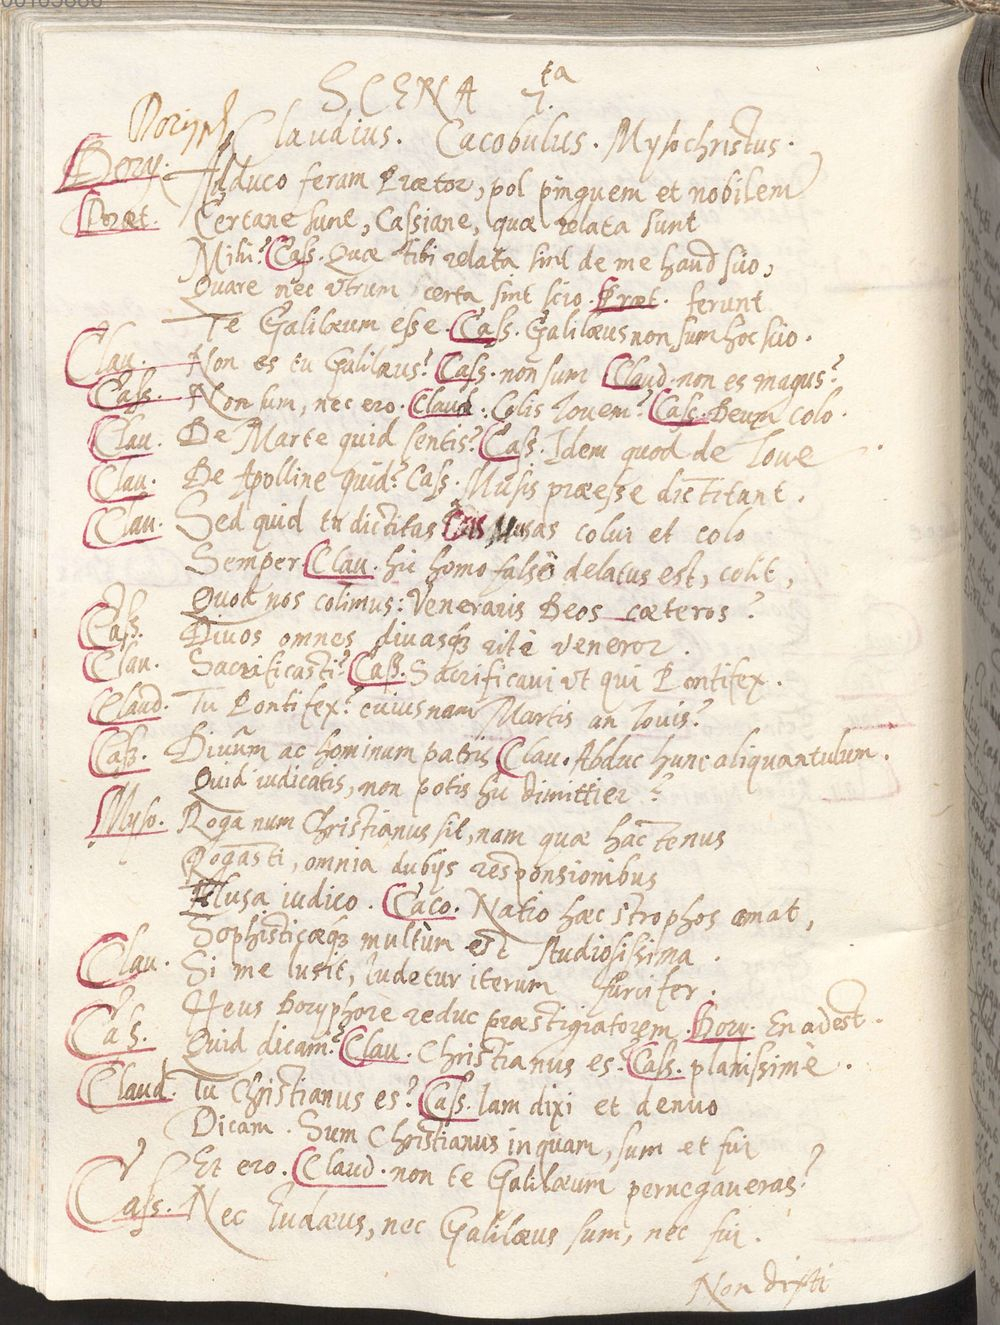 SCENA 7.ta
Doryph. Claudius. Cacobulus. Mysochristus.
Dory. Adduco feram Prætor, pol pinguem et nobilem
Præt. Certane sunt, Cassiane, quæ relata sunt
Mihi? Cass. Quæ tibi relata sint de me haud scio,
Quare nec utrum certa sint scio. Præt. ferunt
Te Galilæum esse. Cass. Galilæus non sum hoc scio.
Clau. Non es tu Galilæus? Cass. non sum Claud. non es magus?
Cass. Non sum, nec ero. Claud. Colis Iovem? Cass. Deum colo.
Clau. De Marte quid sentis? Cass. Idem quod de Ioue
Clau. De Apolline quid? Cass. Musis præesse dictitant.
Clau. Sed quid tu dictitas Cas Musas colui et colo
Semper Clau. hic homo falsò delatus est, colit,
Quod nos colimus: Veneraris Deos cæteros?
Cass. Diuos omnes diuasq3 ritè veneror.
Clau. Sacrificasti? Cass. Sacrificaui ut qui Pontifex.
Claud. Tu Pontifex? cuiusnam Martis an Iouis?
Cass. Diuûm ac hominum patris Clau. Abduc hunc aliquantulum.
Quid iudicatis, non potis hic dimittier?
Myso. Roga num Christianus sit, nam quæ hactenus
Rogasti, omnia dubijs responsionibus
Elusa iudico. Caco. Natio hæc strophos amat,
Sophisticæq3 multùm est studiosissima.
Clau. Si me lusit, ludetur iterum furcifer.
Heus Doryphore reduc præstigiatorem. Dory. En adest.
Cas. Quid dicam? Clau. Christianus es. Cass. planissimè.
Claud. Tu Christianus es? Cass. Iam dixi et denuo
Dicam. Sum Christianus inquam, sum et fui
Et ero. Claud. non te Galilæum pernegaueras?
Cass. Nec Iudæus, nec Galilæus sum, nec fui.
Non dixti